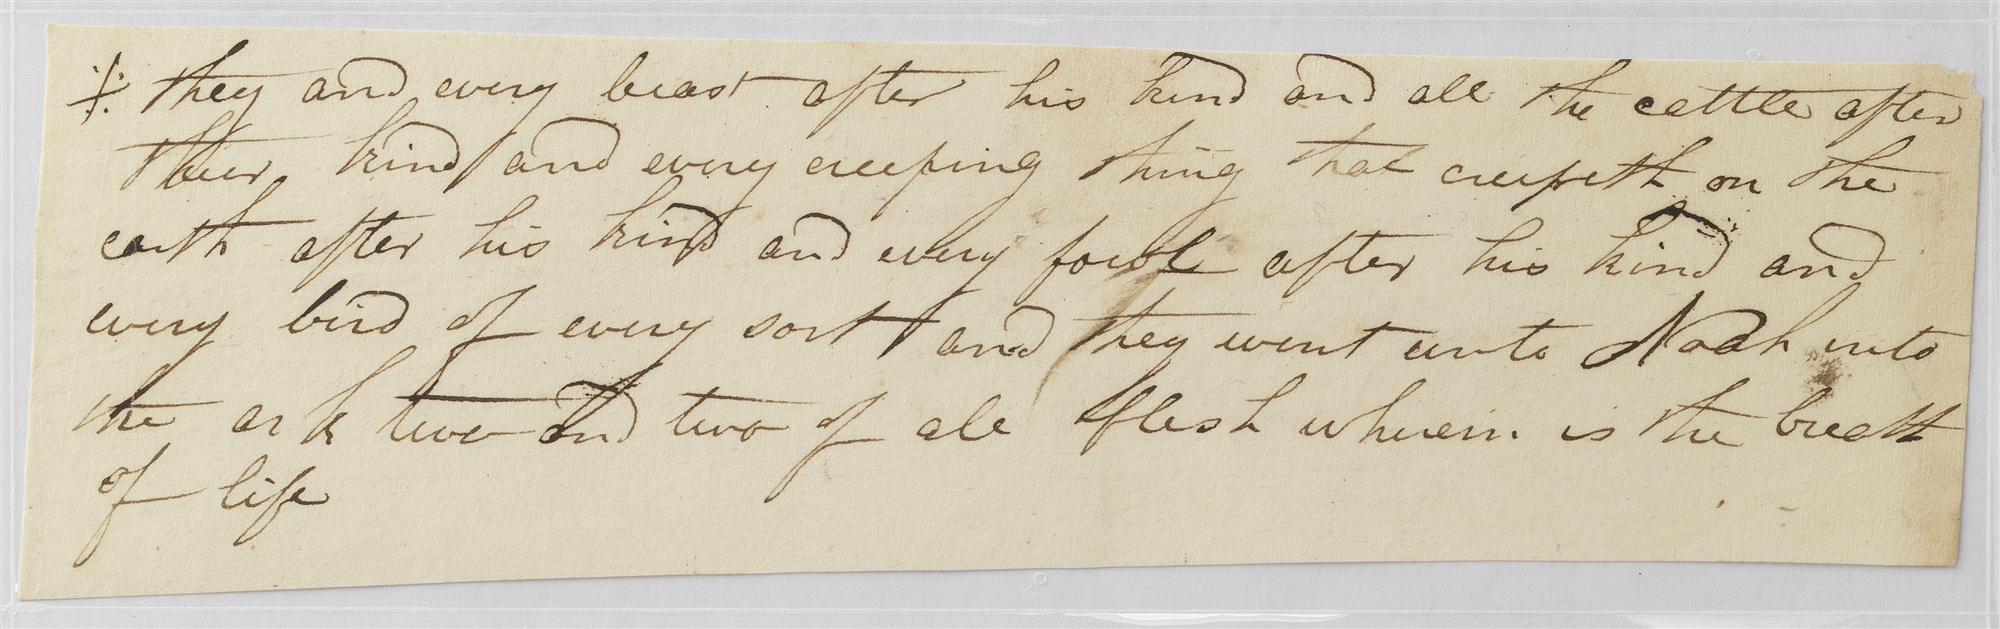 ⁒ they and every beast after his kind and all the cattle after
their kind and every creeping thing that creepeth on the
earth after his kind and every fowl after his kind and
every bird of every sort and they went unto Noah into
the ark two and two of all flesh wherein is the breath
of life